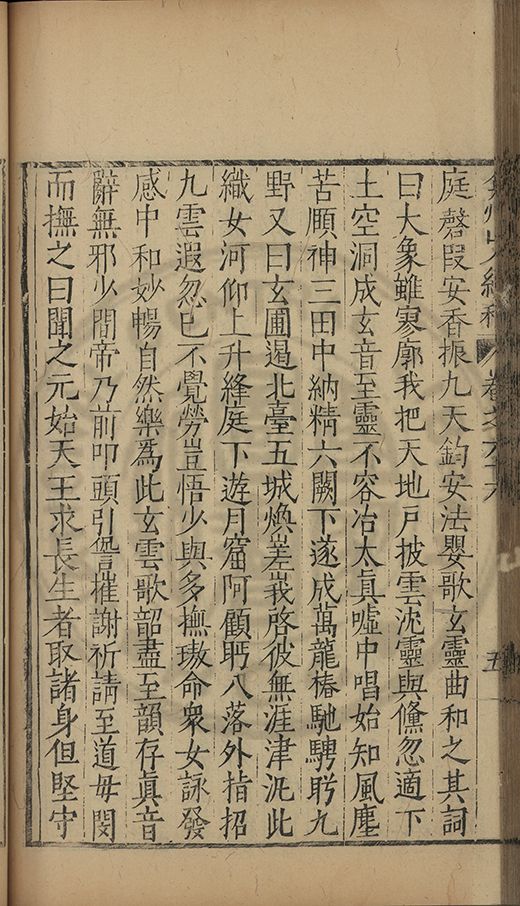 卷之六十六 五
庭磬叚安香振九天鈞安法嬰歌玄靈曲和之其詞
曰大象雖寥廓我把天地戶披雲沉靈與儵忽適下
土空洞成玄音至靈不容冶太眞嘘中唱始知風塵
苦頤神三田中納精六闕下遂成萬龍椿馳騁眄九
野又曰玄圃遏北臺五城煥嵯峩啓彼無涯津汎此
織女河仰上升絳庭下遊月窟阿顧眄八落外指招
九雲遐忽巳不覺勞豈悟少與多撫璈命衆女詠發
感中和妙暢自然樂爲此玄雲歌韶盡至韻存眞音
辭無邪少間帝乃前叩頭引諐摧謝祈請至道母閔
而撫之曰聞之元始天王求長生者取諸身但堅守